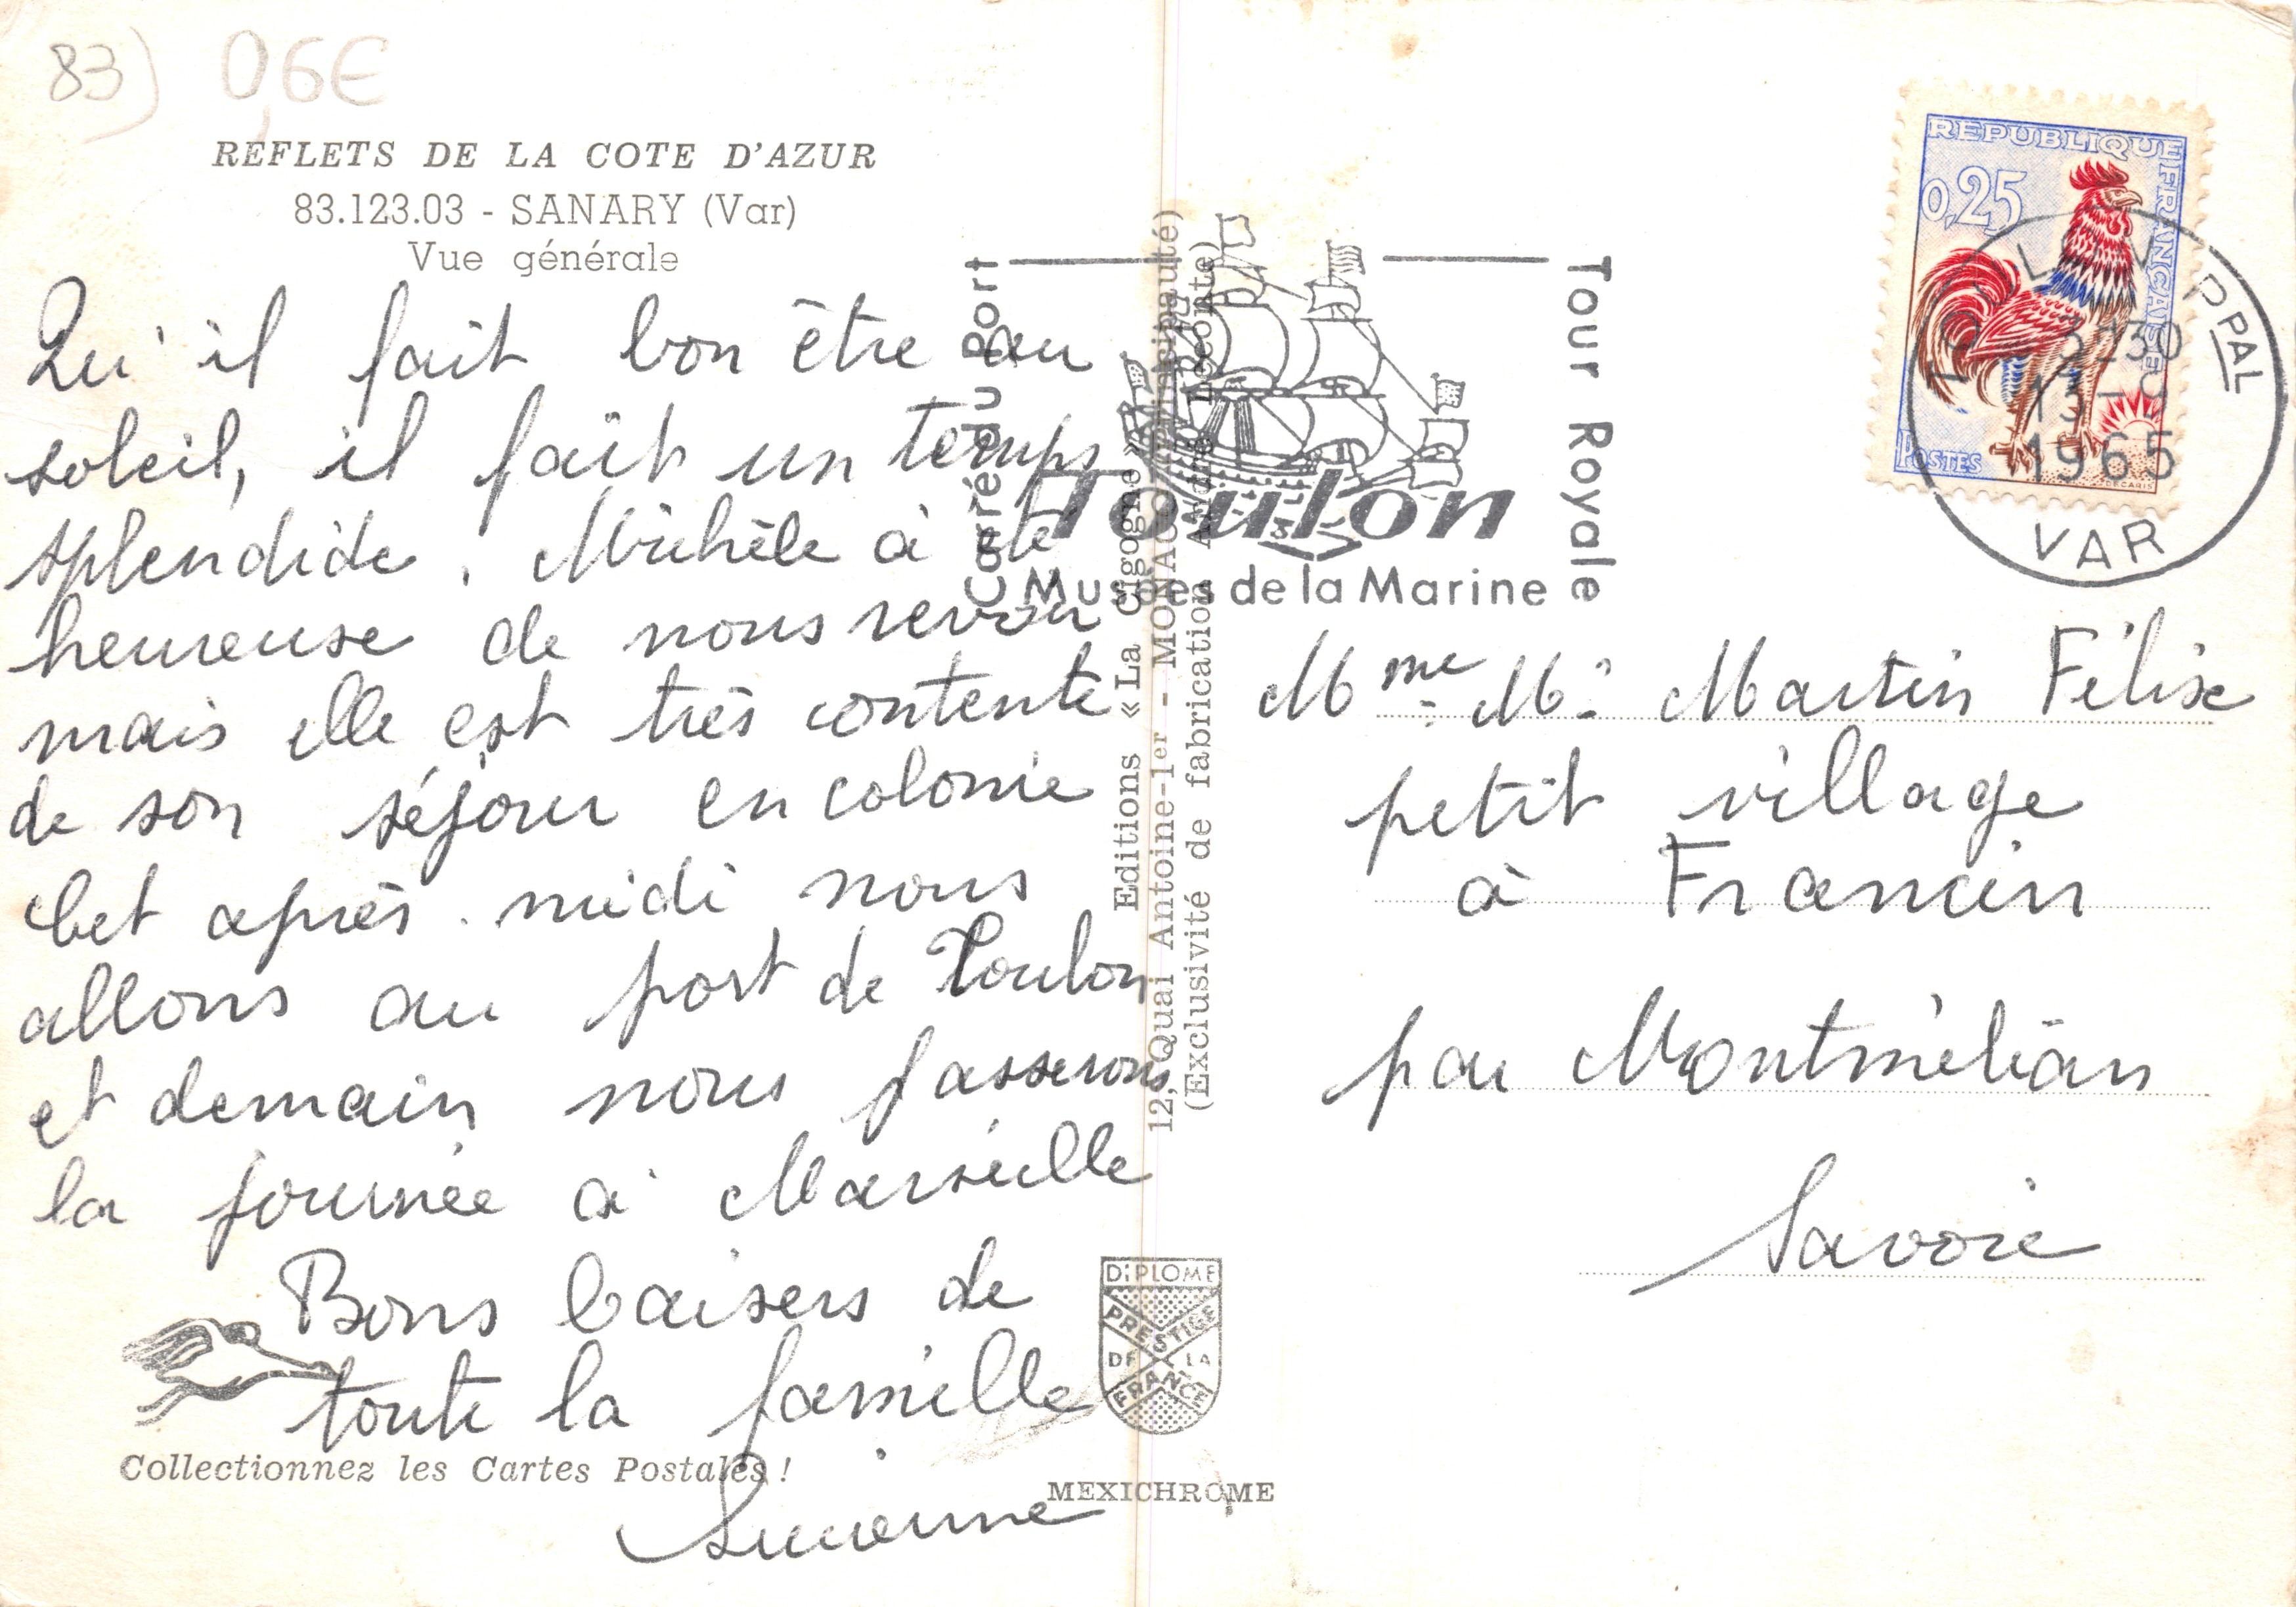 83) 0,6€
REFLETS DE LA COTE D'AZUR
83.123.03 - SANARY (Var)
Vue générale
Qu'il fait bon être au
soleil, il fait un temps
splendide. Michèle a été
heureuse de nous revoir
mais elle est très contente
de son séjour en colonie
Cet après-midi nous
allons au port de Toulon
et demain nous passerons
la journée à Marseille
Bons baisers de
toute la famille
Collectionnez les Cartes Postales !
Editions « La Cigogne »
12, Quai Antoine-1er - MONACO (Principauté)
(Exclusivité de fabrication André Leconte)
DIPLOME
PRESTIGE
DE LA
FRANCE
MEXICHROME
Carré du Port
Toulon
Musées de la Marine
Tour Royale
REPUBLIQUE FRANÇAISE
0,25
POSTES
DECARIS
PPAL
13-9
1965
VAR
Mme M. Martin Félix
petit village
à Francin
par Montmélian
Savoie